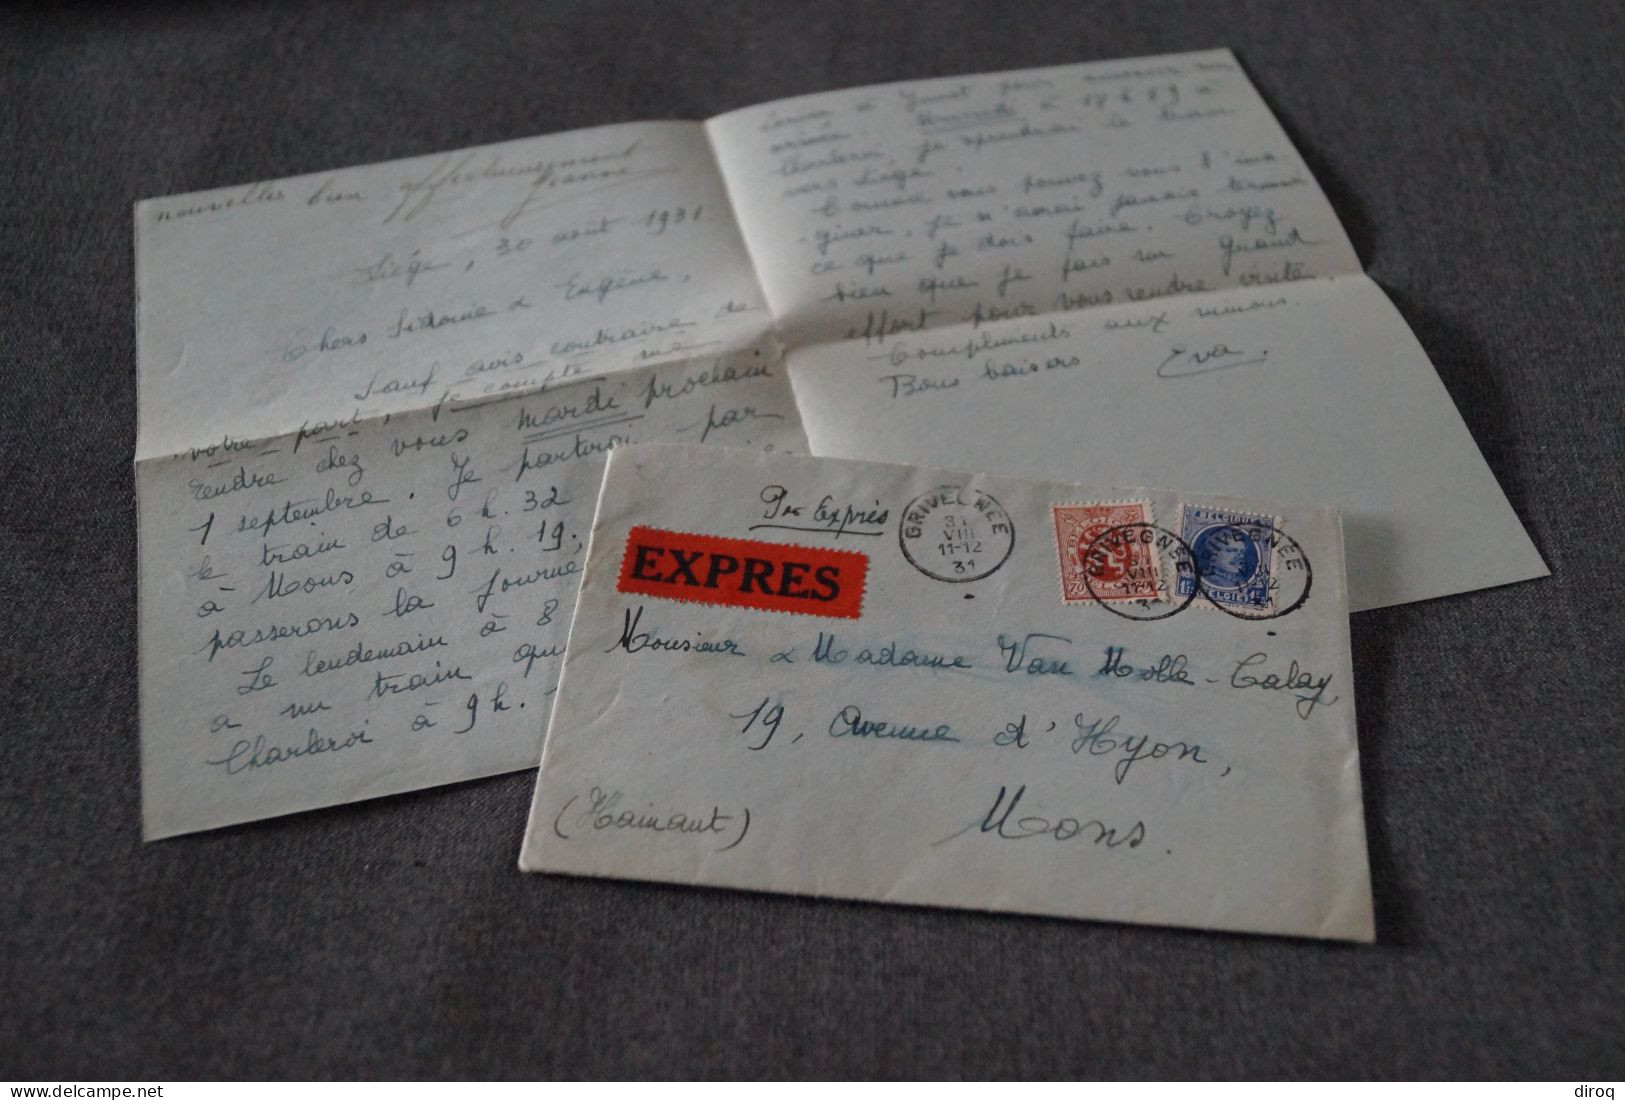 nouvelles bien affectueusement
Jeanne
Liége, 30 août 1931
Chers Sidonie & Eugène,
Sauf avis contraire de
votre part, je compte me
rendre chez vous mardi prochain
1 septembre. Je partirai par
le train de 6 h. 32
à Mons à 9 h. 19;
passerons la journé
Le lendemain à 8
a un train qu
Charleroi à 9 h.
à Jumet pour
arriver à 17 h 59 à
Charleroi, je reprendrai le train
vers Liége.
Comme vous pouvez vous l'ima-
giner, je n'aurai jamais terminé
ce que je dois faire. Croyez
bien que je fais un grand
effort pour vous rendre visite.
Compliments aux mimous.
Bons baisers. Eva.
Par Exprès
EXPRES
GRIVEGNEE
31
VIII
11-12
31
70
GRIVEGNEE
VIII
11-12
31
BELGIQUE
BELGIË
GRIVEGNEE
Monsieur & Madame Van Molle-Calay,
19, Avenue d'Hyon,
Mons.
(Hainaut)
diroq